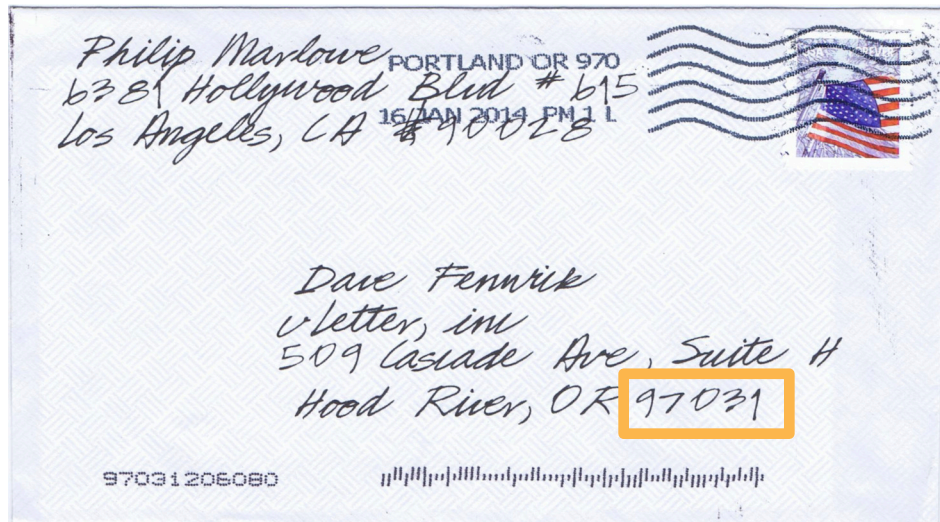 Philip Marlowe
6381 Hollywood Blvd # 615
Los Angeles, CA 90028
PORTLAND OR 970
16 JAN 2014 PM 1 L
USA FOREVER
Dave Fennwick
vLetter, inc
509 Cascade Ave, Suite H
Hood River, OR 97031
97031206080